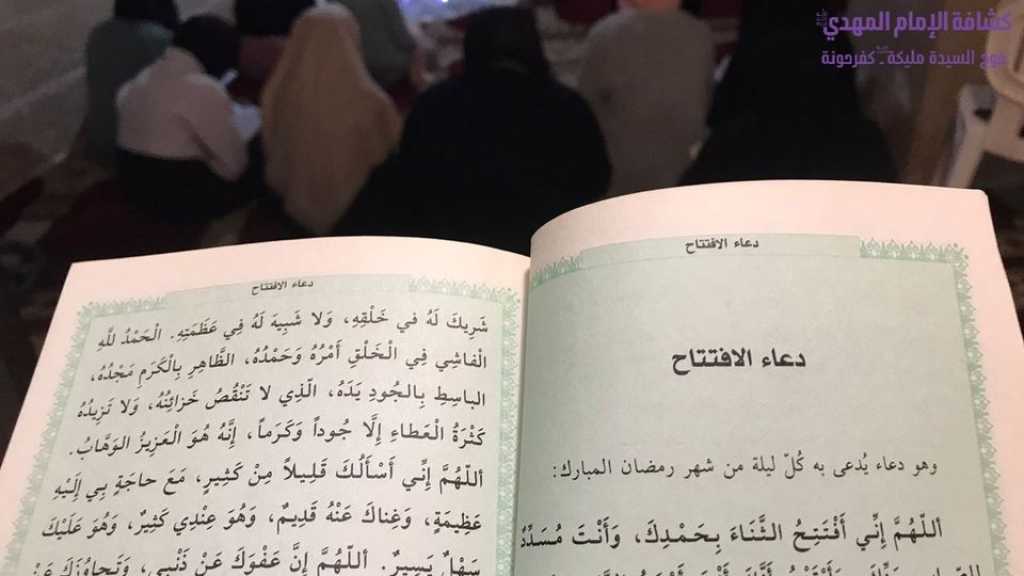 كشافة الإمام المهدي
فوج السيدة مليكة - كفرحونة
دعاء الافتتاح
دعاء الافتتاح
وهو دعاء يُدعى به كُلّ ليلة من شهر رمضان المبارك:
اَللّهُمَّ إِنِّي أَفْتَتِحُ الثَّنَاءَ بِحَمْدِكَ، وَأَنْتَ مُسَدِّدٌ
دعاء الافتتاح
شَرِيكَ لَهُ في خَلْقِهِ، وَلا شَبِيهَ لَهُ فِي عَظَمَتِهِ. الْحَمْدُ للَّهِ
الْفاشِي فِي الْخَلْقِ أَمْرُهُ وَحَمْدُهُ، الظَّاهِرِ بِالْكَرَمِ مَجْدُهُ،
الباسِطِ بِالجُودِ يَدَهُ، الّذِي لا تَنْقُصُ خَزائِنُهُ، وَلا تَزِيدُهُ
كَثْرَةُ الْعَطاءِ إِلَّا جُوداً وَكَرَماً، إِنَّهُ هُوَ الْعَزِيزُ الوَهَّابُ.
اَللّهُمَّ إِنِّي أَسْأَلُكَ قَلِيلاً مِنْ كَثِيرٍ، مَعَ حاجَةٍ بِي إِلَيْهِ
عَظِيمَةٍ، وَغِناكَ عَنْهُ قَدِيمٌ، وَهُوَ عِنْدِي كَثِيرٌ، وَهُوَ عَلَيْكَ
سَهْلٌ يَسِيرٌ. اَللّهُمَّ إِنَّ عَفْوَكَ عَنْ ذَنْبِي، وَتَجاوُزَكَ عَنْ